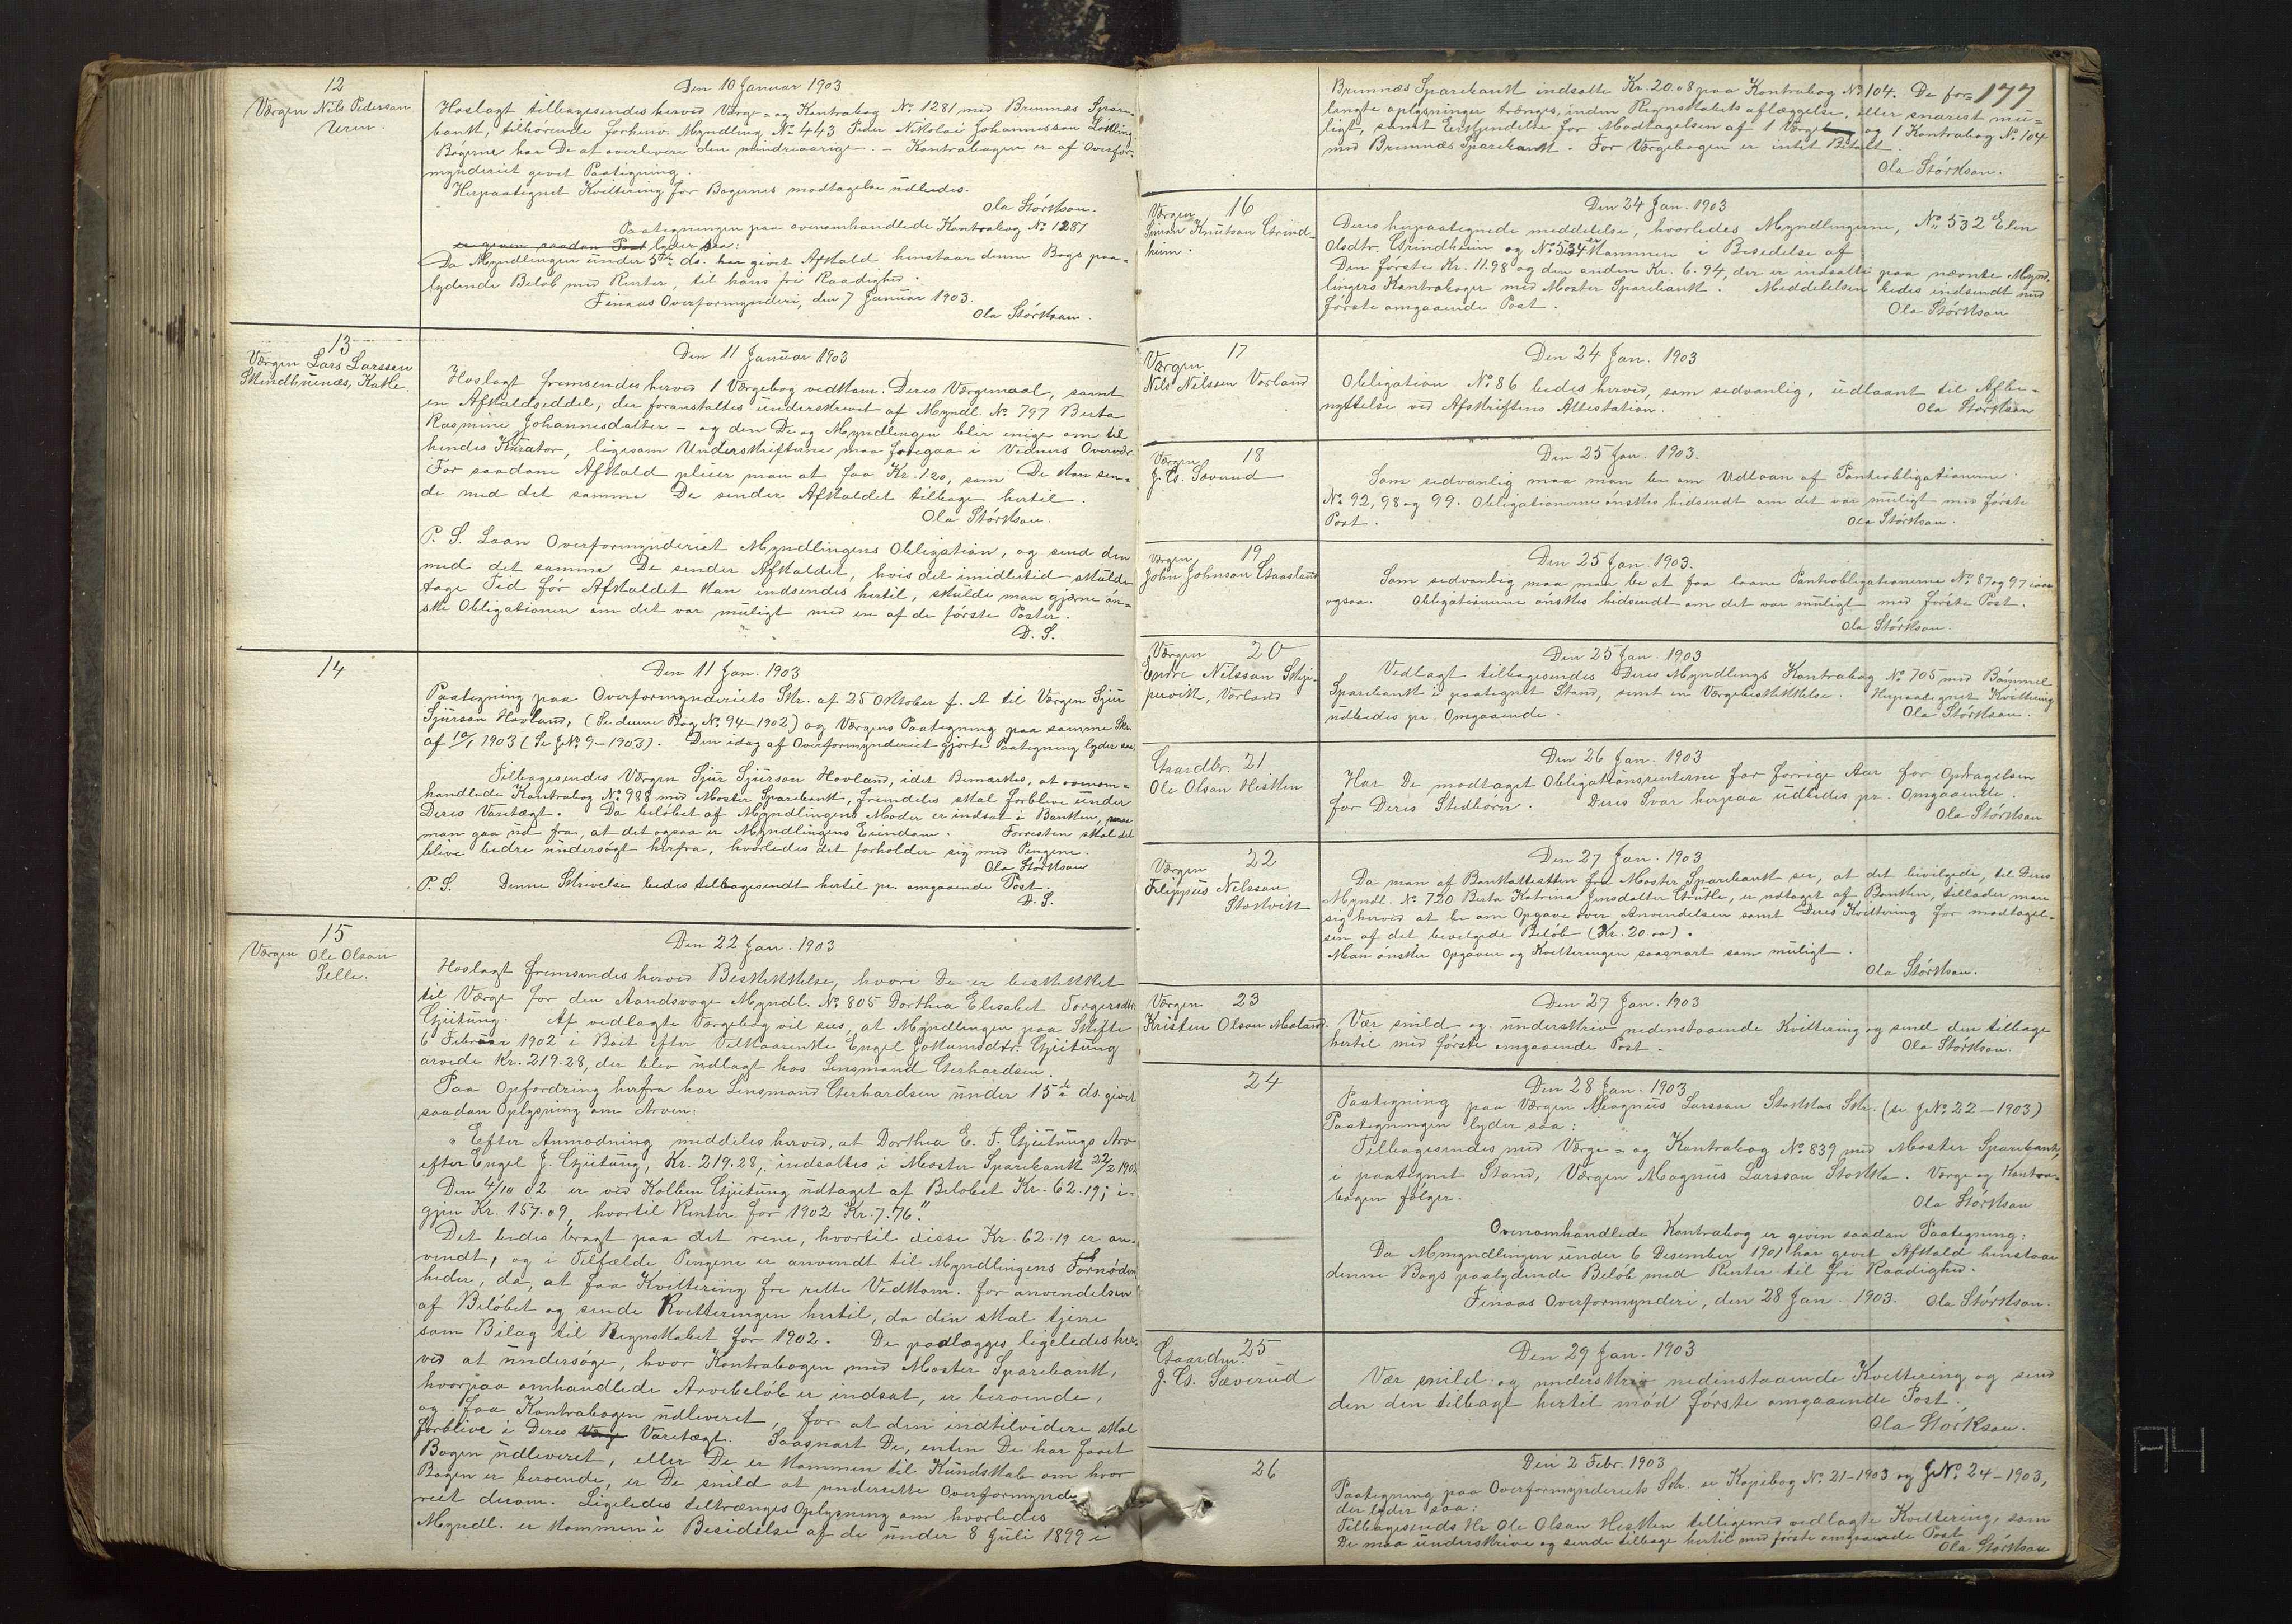 12
Værgen Nils Pederson
Urin.
Den 10 Januar 1903
Hoslagt tilbagesendes herved Værge- og Kontrabog No. 1281 med Bremnæs Spare-
bank, tilhørende forhenv. Myndling No. 443 Peder Nikolai Johannesson
Bøgerne har De at overlevere den mindreaarige. - Kontrabogen er af Overfor-
mynderiet givet Paategning.
Herpaategnet Kvittering for Bøgernes modtagelse udbedes.
Ola Størkson.
Paategningen paa ovenomhandlede Kontrabog No. 1281
er given saadan Paat lyder saa:
Da Myndlingen under 5te ds. har givet Afkald henstaar denne Bogs paa-
lydende Beløb med Renter, til hans fri Raadighed.
Finaas Overformynderi, den 7 Januar 1903.
Ola Størkson.
13
Værgen Lars Larsson
Skimdhuenæs, Katle.
Den 11 Januar 1903
Hoslagt fremsendes herved 1 Værgebog vedkom. Deres Værgemaal, samt
en Afkaldseddel, der foranstaltes underskrevet af Myndl. No. 797 Berta
Rasmine Johannesdatter - og den De og Myndlingen blir enige om til
hendes Kurator, ligesom Underskrifterne maa foregaa i Vidners Overvær.
For saadane Afkald pleier man at faa Kr. 1.20, som De kan sen-
de med det samme De sender Afkaldet tilbage hertil.
Ola Størkson.
P. S. Laan Overformynderiet Myndlingens Obligation, og send den
med det samme De sender Afkaldet, hvis det imidlertid skulde
tage Tid før Afkaldet kan indsendes hertil, skulde man gjerne øn-
ske Obligationen om det var muligt med en af de første Poster.
D. S.
14
Den 11 Jan. 1903
Paategning paa Overformynderiets Skr. af 25 Oktober f. A til Værgen Sjur
Sjurson Hovland, (Se denne Bog No. 94-1902) og Værgens Paategning paa samme Skr.
af 10/1 1903 (Se JNo. 9-1903). Den idag af Overformynderiet gjorte Paategning lyder saa:
Tilbagesendes Værgen Sjur Sjurson Hovland, idet Bemærkes, at ovenom-
handlede Kontrabog No. 988 med Moster Sparebank, fremdeles skal forblive under
Deres Varetægt. Da beløbet af Myndlingens Moder er indsat i Banken, maa
man gaa ud fra, at det ogsaa er Myndlingens Eiendom. Forresten skal det
blive bedre undersøgt herfra, hvorledes det forholder sig med Pengene.
Ola Størkson
P. S. Denne Skrivelse bedes tilbagesendt hertil pr. omgaaende Post.
D. S.
15
Værgen Ole Olsen
Selle.
Den 22 Jan. 1903
Hoslagt fremsendes herved Beskikkelse, hvori De er beskikket
til Værge for den Aandssvage Myndl. No. 805 Dorthea Elisabet Torgersdtr.
Gjeitung. Af vedlagte Værgebog vil sees, at Myndlingen paa Skifte
6 Februar 1902 i Boet efter Vilkaarenke Engel Jokumsdtr. Gjeitung
arvede Kr. 219.28, der blev udlagt hos Lensmand Gerhardsen.
Paa Opfordring herfra har Lensmand Gerhardsen under 15de ds. givet
saadan Oplysning om Arven:
"Efter Anmodning meddeles herved, at Dorthea E. T. Gjeitungs Arv
efter Engel J. Gjeitung, Kr. 219.28, indsattes i Moster Sparebank 22/2 1902
Den 4/10 02 er ved Kolben Gjeitung udtaget af Beløbet Kr. 62.19; i-
gjen Kr. 157.09, hvortil Renter for 1902 Kr. 7.76."
Det bedes bragt paa det rene, hvortil disse Kr. 62.19 er an-
vendt, og i Tilfælde Pengene er anvendt til Myndlingens Fornøden
heder, da, at faa Kvittering fra rette Vedkom. for anvendelsen
af Beløbet og sende Kvitteringen hertil, da den skal tjene
som Bilag til Regnskabet for 1902. De paalægges ligeledes her-
ved at undersøge, hvor Kontrabogen med Moster Sparebank,
hvorpaa omhandlede Arvebeløb er indsat, er beroende,
og faa Kontrabogen udleveret, for at den indtilvidere skal
forblive i Deres Værge Varetægt. Saasnart De, enten De har faaet
Bogen udleveret, eller De er kommen til Kundskab om hvor
Bogen er beroende, er De snild at underrette Overformynde-
riet derom. Ligeledes tiltrænges Oplysning om hvorledes
Myndl. er kommen i Besidelse af de under 8 Juli 1899 i
177
Bremnæs Sparebank indsatte Kr. 20.08 paa Kontrabog No. 104. De for-
langte oplysninger trænges, inden Regnskabets aflæggelse, eller snarest mu-
ligt, samt Erkjendelse for Modtagelsen af 1 Værgebog og 1 Kontrabog No. 104
med Bremnæs Sparebank. For Værgebogen er intet Betalt.
Ola Størkson.
16
Værgen
Simon Knutson Grind-
heim.
Den 24 Jan. 1903
Deres herpaategnede meddelelse, hvorledes Myndlingerne, No. 532 Elen
Olsdtr. Grindheim og No. 534 er Kommen i Besidelse af
Den første Kr. 11.98 og den anden Kr. 6.94, der er indsatte paa nævnte Mynd-
lingers Kontrabøger med Moster Sparebank. Meddelelsen bedes indsendt med
første omgaaende Post.
Ola Størkson
17
Værgen
Nils Nilssen Vorland
Den 24 Jan. 1903
Obligation No. 86 bedes herved, som sedvanlig, udlaant til Afbe-
nyttelse ved Afskriftens Attestation.
Ola Størkson
18
Værgen
J. Cs. Sæverud
Den 25 Jan. 1903.
Som sedvanlig maa man be om Udlaan af Panteobligationerne
No. 92, 98 og 99. Obligationerne ønskes hidsendt om det var muligt med første
Post.
Ola Størkson.
19
Værgen
John Johnson Gaasland
Den 25 Jan. 1903.
Som sedvanlig maa man be at faa laane Panteobligationerne No. 87 og 97 iaar
ogsaa. Obligationerne ønskes hidsendt om det var muligt med første Post.
Ola Størkson.
20
Værgen
Endre Nilsson Skje-
pevik, Vorland
Den 25 Jan. 1903
Vedlagt tilbagesendes Deres Myndlings Kontrabog No. 705 med Bømmel
Sparebank i paategnet Stand, samt en Værgebeskikkelse. Herpaategnet Kvittering
udbedes pr. Omgaaende.
Ola Størkson.
21
Gaardbr.
Ole Olson Heskten
Den 26 Jan. 1903
Har De modtaget Obligationsrenterne for forrige Aar for Opdragelsen
for Deres Stedbørn. Deres Svar herpaa udbedes pr. Omgaaende.
Ola Størkson
22
Værgen
Filippus Nilsson
Stokvik
Den 27 Jan. 1903
Da man af Bankattesten fra Moster Sparebank ser, at det bevilgede, til Deres
Myndl. No. 720 Berta Katrina Jensdatter Grutle, er udtaget af Banken, tillader man
sig herved at be om Opgave over Anvendelsen samt Deres Kvittering for modtagel-
sen af det bevilgede Beløb (Kr. 20.00).
Man ønsker Opgaven og Kvitteringen saasnart som muligt.
Ola Størkson.
23
Værgen
Kristen Olson Mæland.
Den 27 Jan. 1903
Vær snild og underskriv nedenstaaende Kvittering og send den tilbage
hertil med første omgaaende Post.
Ola Størkson.
24
Den 28 Jan. 1903
Paategning paa Værgen Magnus Larsson Stokkas Skr. (se JNo. 22-1903)
Paategningen lyder saa:
Tilbagesendes med Værge- og Kontrabog No. 839 med Moster Sparebank,
i paategnet Stand, Værgen Magnus Larsson Stokka. Værge og Kontra-
bogen følger.
Ola Størkson
Ovenomhandlede Kontrabog er given saadan Paategning:
Da Mmyndlingen under 6 Desember 1901 har givet Afkald henstaar
denne Bogs paalydende Beløb med Renter til fri Raadighed.
Finaas Overformynderi, den 28 Jan. 1903. Ola Størkson.
25
Gaardm.
J. Cs. Sæverud
Den 29 Jan. 1903
Vær snild og underskriv nedenstaaende Kvittering og send
den den tilbagt hertil med første omgaaende Post.
Ola Størkson.
26
Den 2 Febr. 1903
Paategning paa Overformynderiets Skr. se Kopibog No. 21-1903 og JNo. 24-1903,
der lyder saa:
Tilbagesends Hr Ole Olson Heskten tilligemed vedlagte Kvittering, som
De maa underskrive og sende tilbage hertil med første omgaaende Post
Ola Størkson